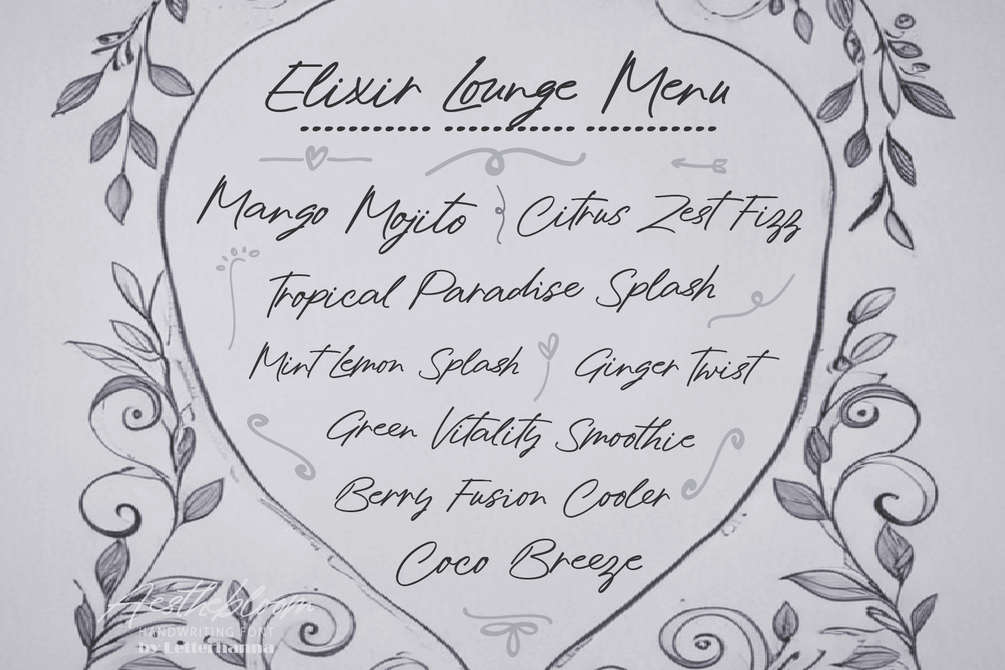 Elixir Lounge Menu
Mango Mojito Citrus Zest Fizz
Tropical Paradise Splash
Mint Lemon Splash Ginger Twist
Green Vitality Smoothie
Berry Fusion Cooler
Coco Breeze
Aesthebloom
HANDWRITING FONT
by Letterhanna